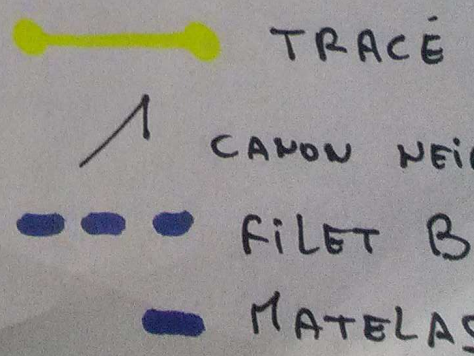 TRACÉ
CANON NEI
FILET B
MATELAS